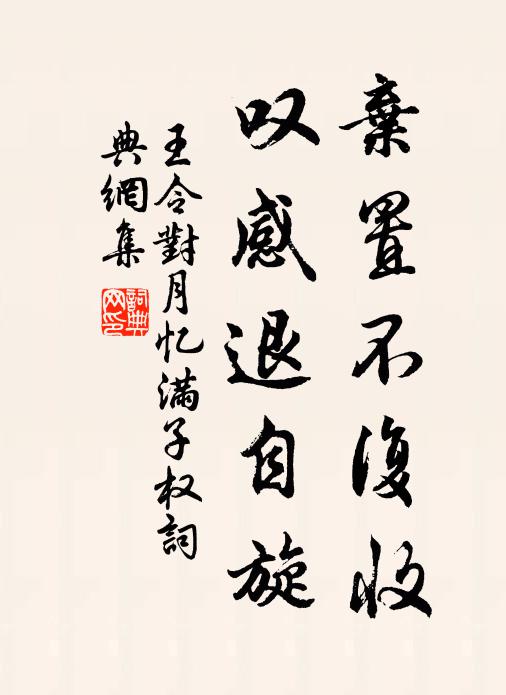 棄置不復收
叹感退自旋
王令對月忆滿子权詞
典網集
詞典
网印